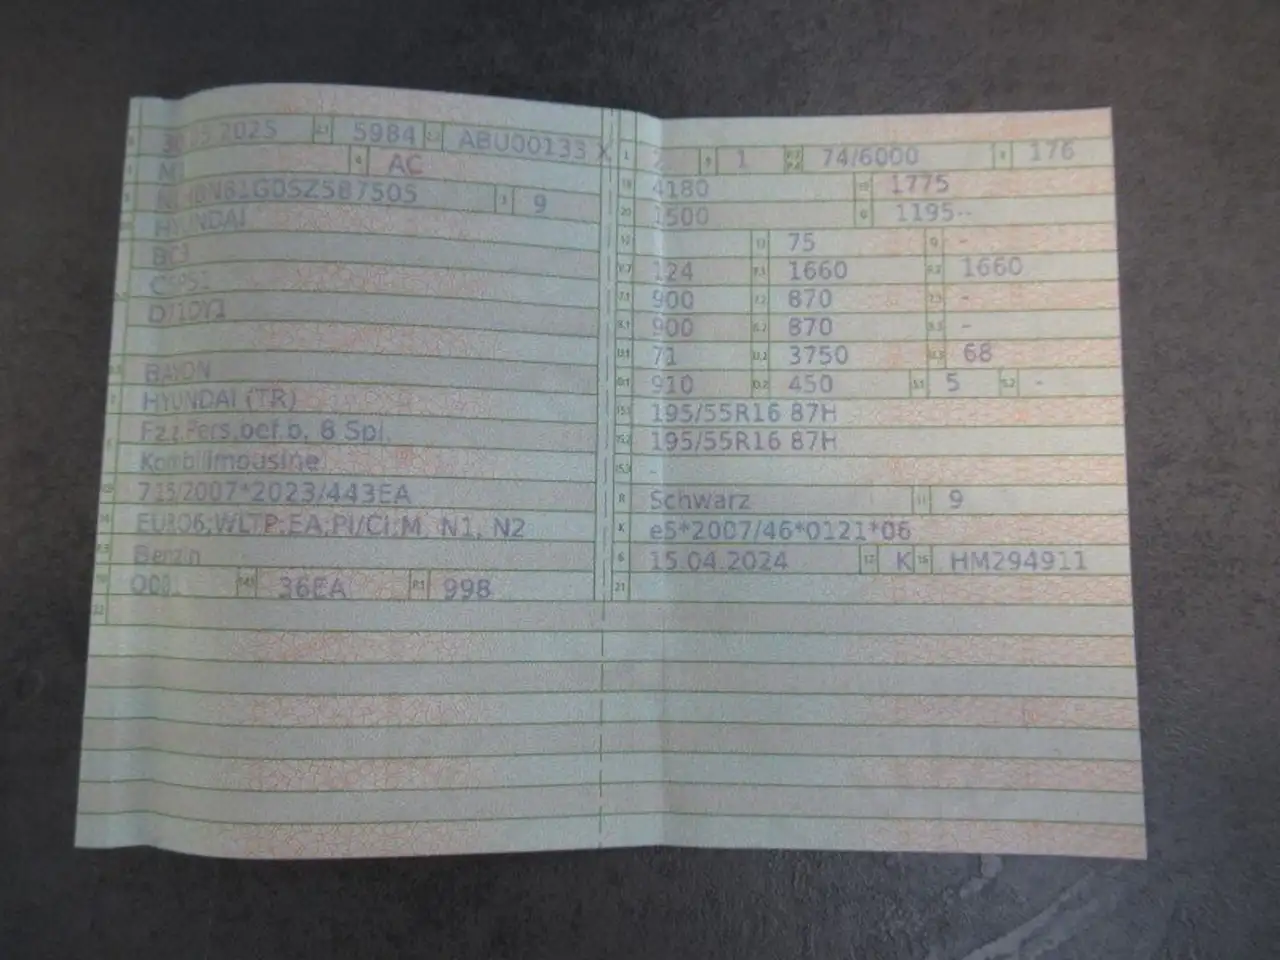 .05.2025 5984 ABU00133 X
AC
B1GDSZ587505 9
HYUNDAI
BC3
BAYON
HYUNDAI (TR)
Fz.z.Pers.bef.b. 8 Spl.
Kombilimousine
715/2007*2023/443EA
EURO6;WLTP;EA;PI/CI;M, N1, N2
Benzin
36EA R.1 998
22
1 74/6000 T 176
18 4180 19 1775
20 1500 G 1195--
12 13 75 Q -
V.7 124 F.1 1660 F.2 1660
7.1 900 7.2 870 7.3 -
8.1 900 8.2 870 8.3 -
U.1 71 U.2 3750 U.3 68
O.1 910 O.2 450 S.1 5 S.2 -
15.1 195/55R16 87H
15.2 195/55R16 87H
15.3 -
R Schwarz 11 9
K e5*2007/46*0121*06
6 15.04.2024 17 K 16 HM294911
21